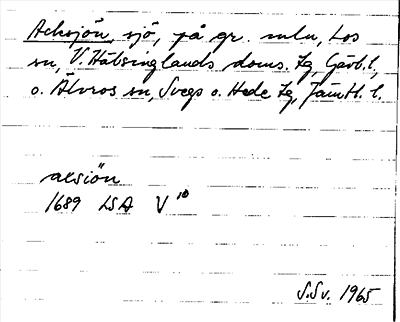 Acksjön, sjö, på gr. mln, Los
sn, V. Hälsinglands doms. tg, Gävl. l,
o. Älvros sn, Svegs o. Hede tg, Jämtl. l.
acsiön
1689 LSA V 10
S.Sv. 1965